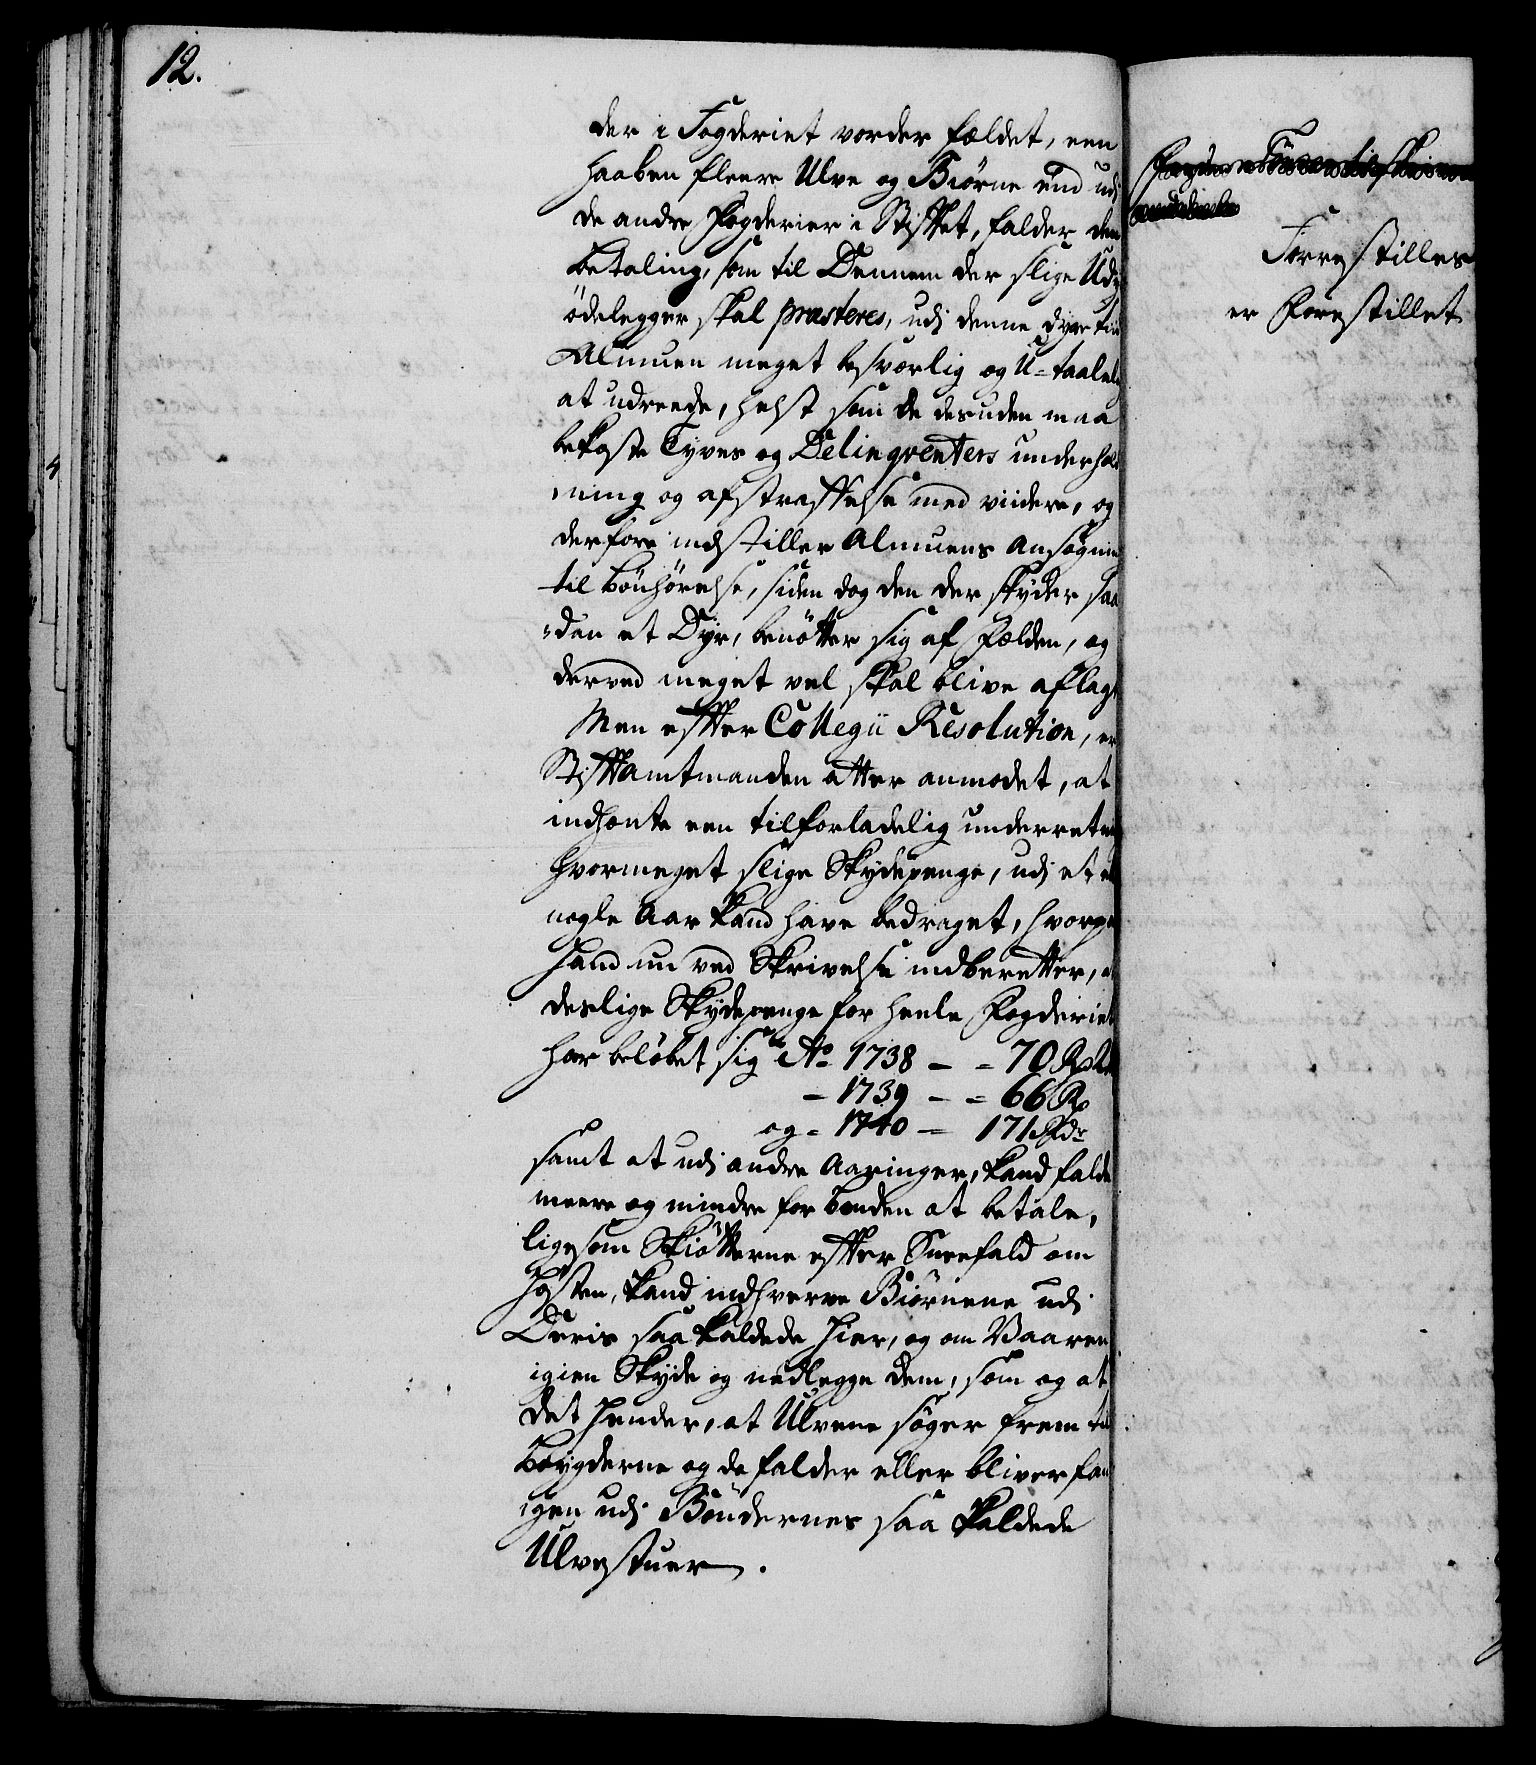 12.
der i Fogderiet vorder fældet, een
haaben fleere Ulve og Biørne end udj
de andre Fogderier i Stiftet, falder den
betaling, som til Dennem der slige Udyr
ødelegger skal præsteres, udj denne dyre tiid
Almuen meget besværlig og U-taalelig
at udreede, helst som de desuden maa
bekoste Tyves og Delinqventers underhold
ning og afstraffelse med viidere, og
derfore indstiller Almuens Ansøgning
til bønhørelse, siden dog den der skyder saa
dan et Dyr, benøtter sig af fælden, og
derved meget vel skal blive aflagt
Men efter Collegii Resolution, er
Stiftamtmanden atter anmodet, at
indhente een tilforladelig underretning
hvormeget slige Skydepenge, udj et eller
nogle Aar kand have bedraget, hvorpaa
hand nu ved Skrivelse indberetter, at
deslige Skydepenge for heele Fogderiet
har beløbet sig Ao 1738 - - 70 Rd
- 1739 - - 66 Rd
og - 1740 - 171 Rdr
samt at udj andre Aaringer, kand falde
meere og mindre for bonden at betale,
ligesom Skiøtterne efter Sneefald om
Høsten, kand indhverve Biørnene udj
Deris saa kaldede Hier, og om Vaaren
igien Skyde og nedlegge dem, som og at
det hender, at Ulvene søger frem til
Boygderne og da falder eller bliver fan
gen udj Bøndernes saa kaldede
Ulvestuer.
Forrestilles
er forestillet